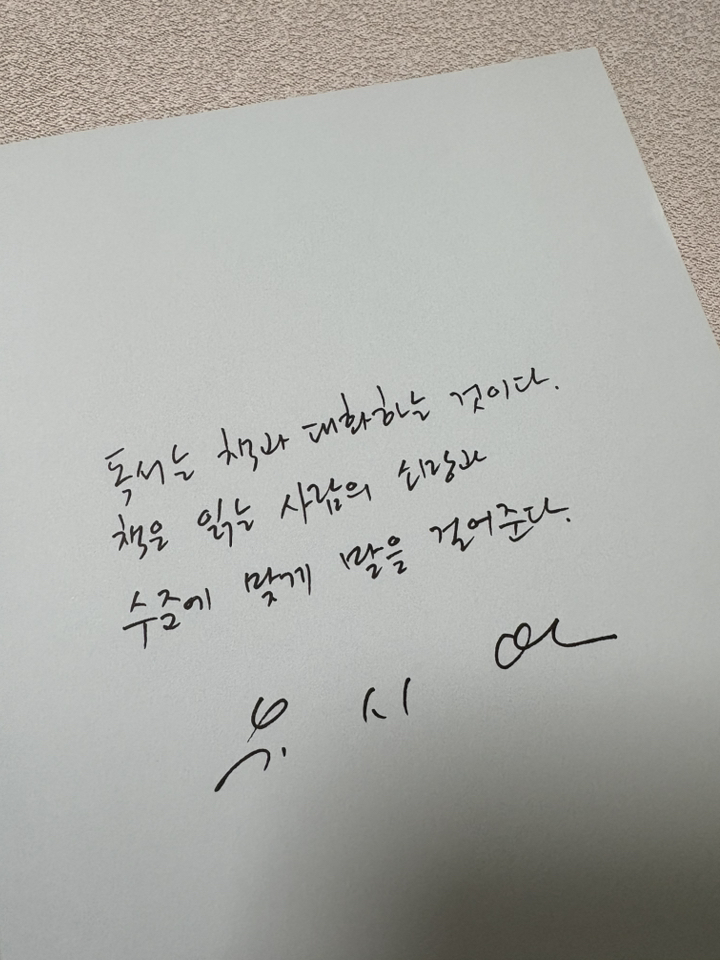 독서는 책과 대화하는 것이다.
책은 읽는 사람의 취향과
수준에 맞게 말을 걸어준다.
유 시 민